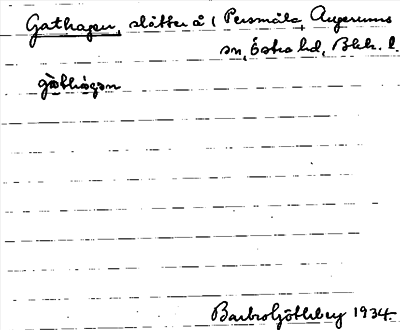 Gathagen, slåtter å 1 Persmåla, Augerums
sn, Östra hd, Blek. l.
gàthàgǝn
Barbro Götlsberg 1934.